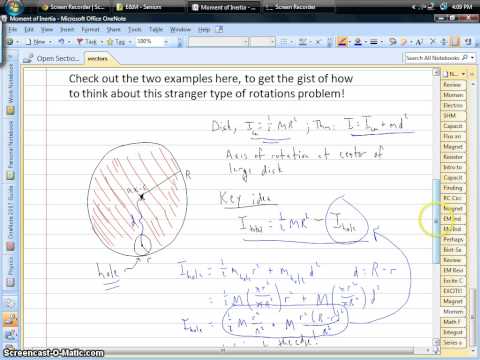 Screen Recorder |
E&M - Seniors
Moment of Inertia -
Screen Recorder
4:09 PM
Moment of Inertia - Microsoft Office OneNote
100%
Open Sectio...
vectors
Search All Notebooks
Check out the two examples here, to get the gist of how
to think about this stranger type of rotations problem!
Disk, I_cm = 1/2 MR² ; Thm: I = I_cm + md²
Axis of rotation at center of
large disk
axis
R
d
r
hole
Key idea
I_total = 1/2 MR² - I_hole
I_hole = 1/2 M_hole r² + M_hole d²    d = R - r
= 1/2 M (πr²/πR²) r² + M (πr²/πR²) d²
I_hole = 1/2 M r⁴/R² + M r²(R-r)²/R²
Review
Momen
Electro
SHM
Capacit
Flux an
Magnet
Resistor
Intro to
Capacit
Finding
RC Circ
Magnet
EM Ind
Perhaps
Biot-Sa
EM Revi
Excite C
EXCITE!
Momen
Math F
Introduc
Series a
Work Notebook
Personal Notebook
OneNote 2007 Guide
Unfiled Notes
Screencast-O-Matic.com